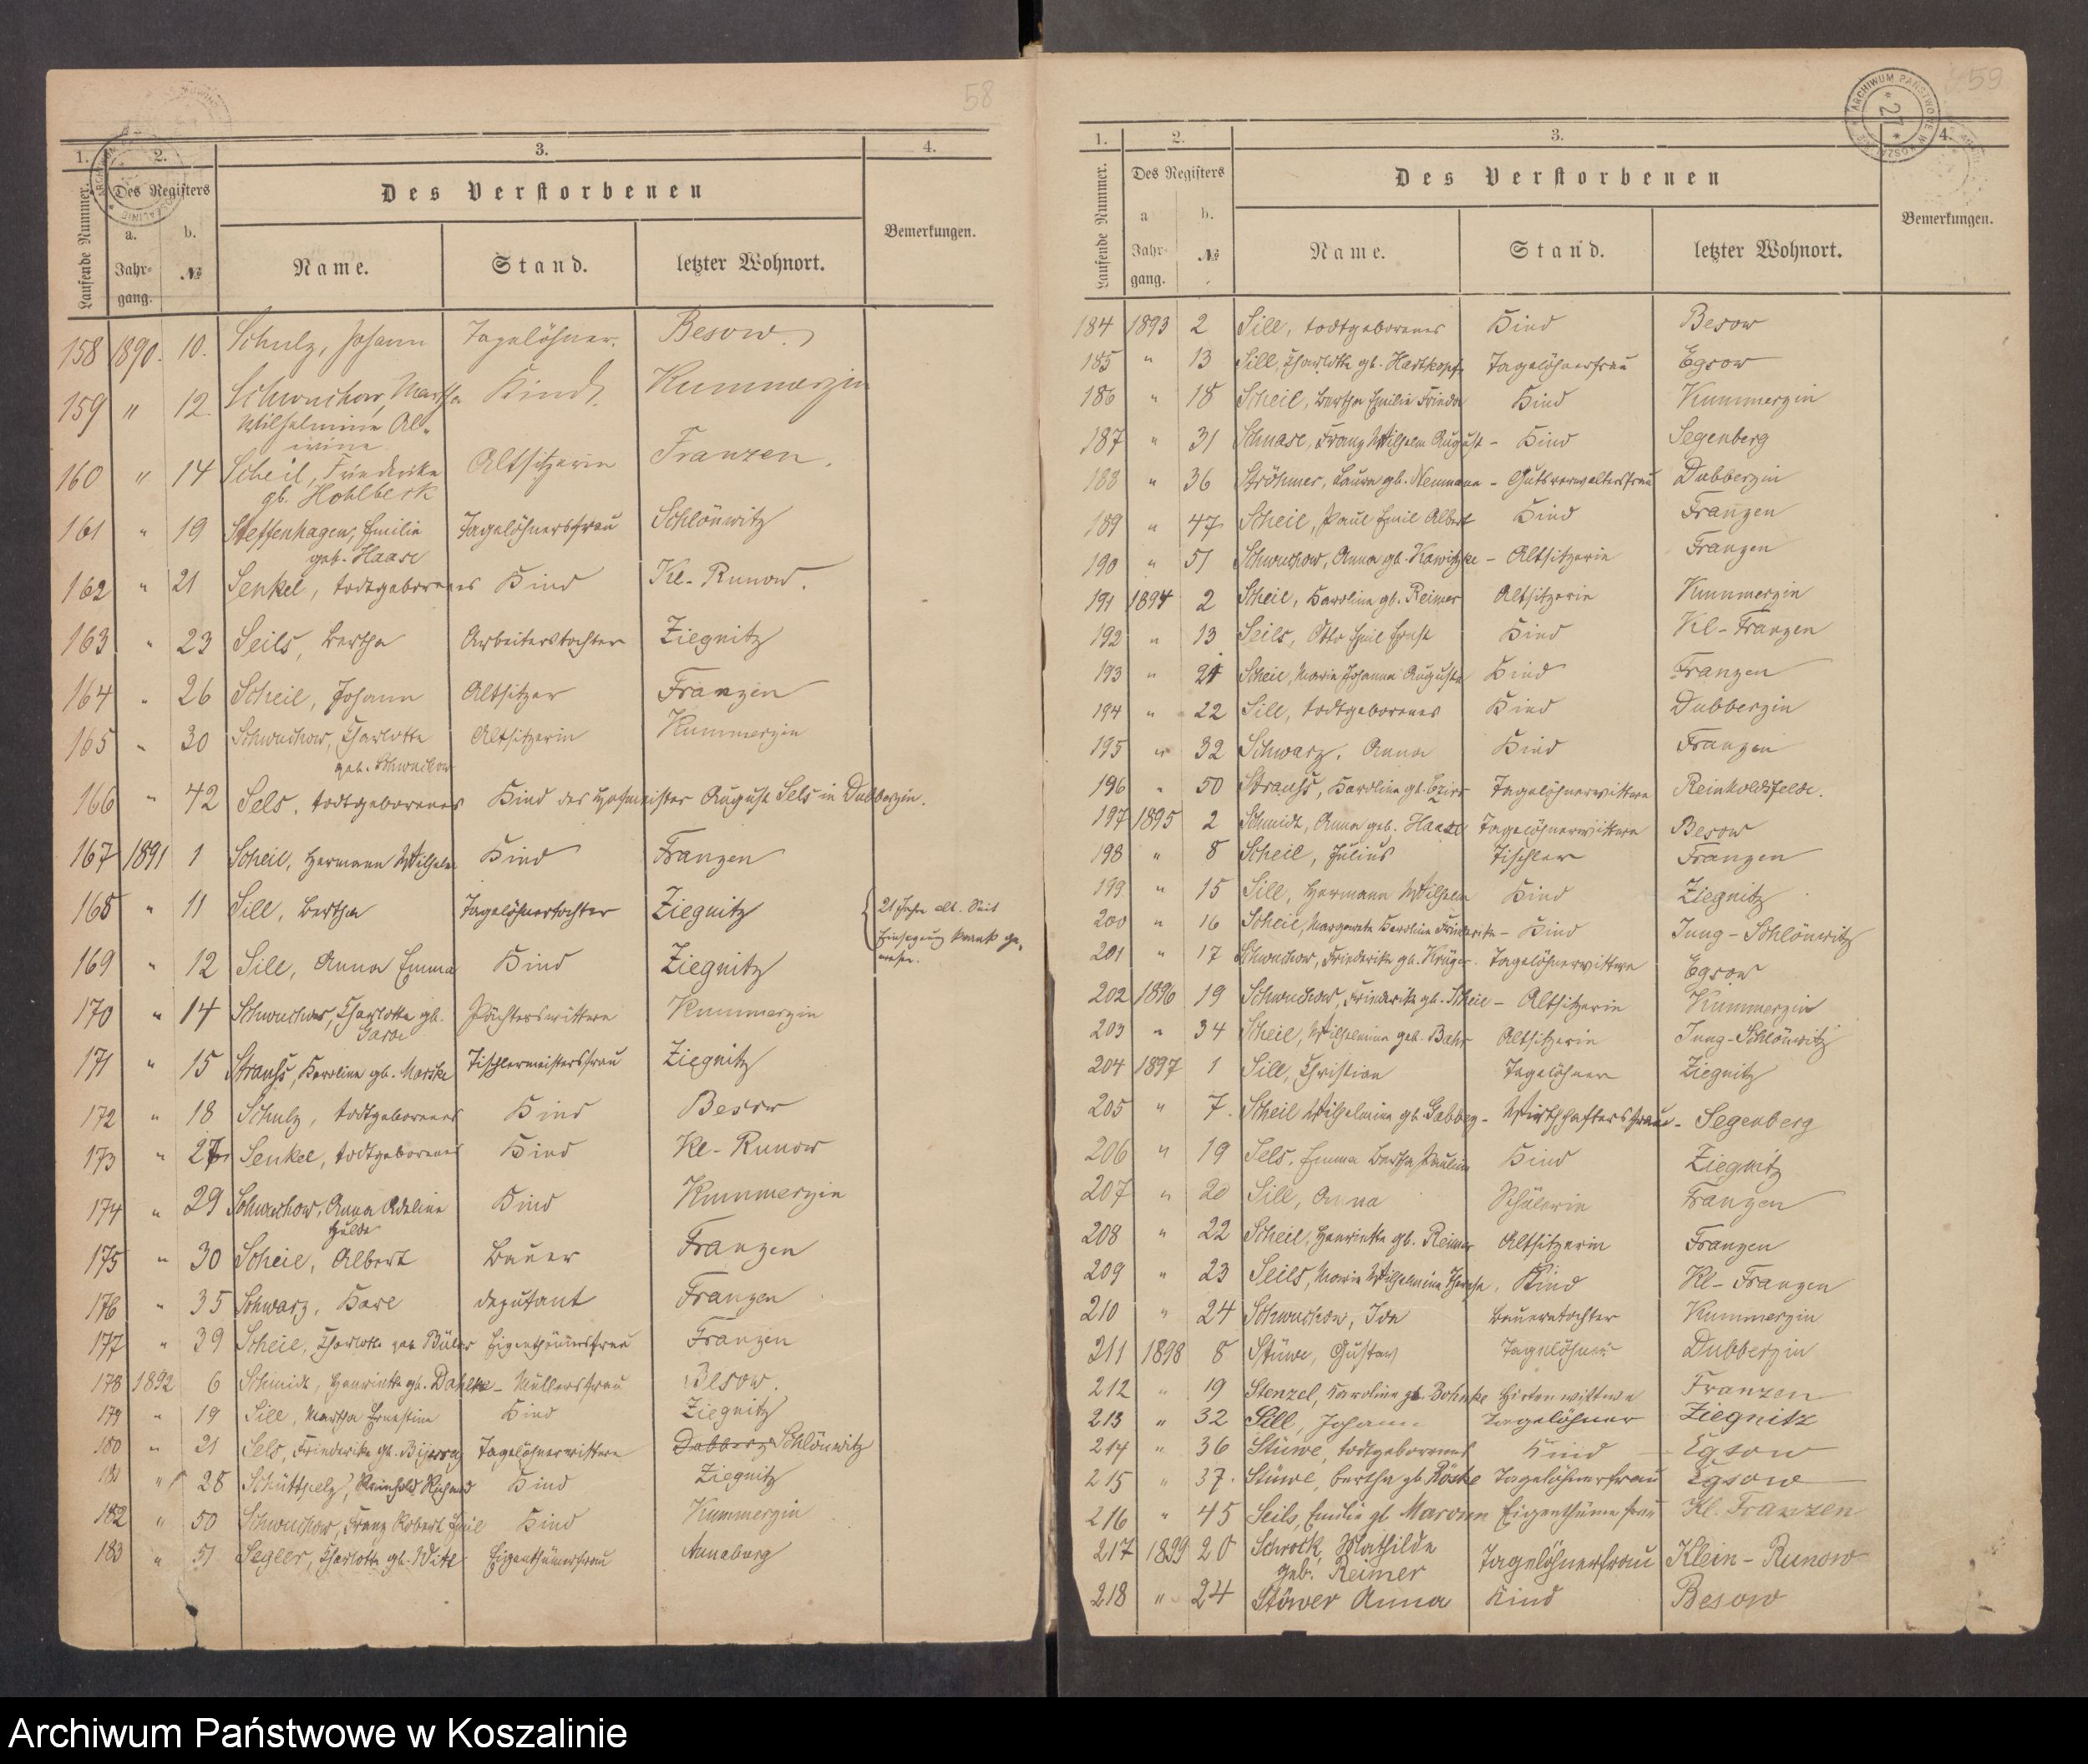 58
1. 2. 3. 4.
Laufende Nummer.
Des Registers
Des Verstorbenen
Bemerkungen.
a. b.
Jahrgang. №
Name. Stand. letzter Wohnort.
158 1890. 10. Schulz, Johann Tagelöhner. Besow.
159 " 12. Schwuchow, Martha Kind. Kummerzin
Wilhelmine Al-
wine
160 " 14 Scheil, Friederike Altsitzerin Franzen.
gb. Hohlbeck
161 " 19 Steffenhagen, Emilie Tagelöhnersfrau Schlönwitz
geb. Haase
162 " 21 Senkel, todtgeborenes Kind Kl-Runow.
163 " 23 Seils, Bertha Arbeiterstochter Ziegnitz
164 " 26 Scheil, Johann Altsitzer Franzen
165 " 30 Schwuchow, Charlotte Altsitzerin Kummerzin
geb. Schwuchow
166 " 42 Sels, todtgeborenes Kind des Hofmeister August Sels in Dubberzin.
167 1891 1 Scheil, Hermann Wilhelm Kind Franzen
168 " 11 Sill, Bertha Tagelöhnertochter Ziegnitz 21 Jahr alt. Seit
Einsegnung krank ge-
wesen.
169 " 12 Sill, Anna Emma Kind Ziegnitz
170 " 14 Schwuchow, Charlotte gb. Pächterswittwe Kummerzin
Garde
171 " 15 Strauss, Karoline gb. Tischlermeistersfrau Ziegnitz
172 " 18 Schulz, todtgeborenes Kind Besow
173 " 27 Senkel, todtgeborenes Kind Kl-Runow
174 " 29 Schwuchow, Anna Adeline Kind Kummerzin
Hulda
175 " 30 Scheil, Albert Bauer Franzen
176 " 35 Schwarz, Karl Deputant Franzen
177 " 39 Scheil, Charlotte geb. Eigenthümersfrau Franzen
178 1892 6 Schmidt, Henriette gb. Dahlke - Müllersfrau Besow.
179 " 19 Sill, Martha Ernestine Kind Ziegnitz
180 " 21 Sels, Friederike gb. Tagelöhnerwittwe Schlönwitz
181 " 28 Schüttpelz, Reinhold Richard Kind Ziegnitz
182 " 50 Schwuchow, Franz Robert Emil Kind Kummerzin
183 " 51 Segler, Charlotte gb. Witt Eigenthümerfrau Annaburg
59
ARCHIWUM PAŃSTWOWE W KOSZALINIE
* 27 *
1. 2. 3. 4.
Laufende Nummer.
Des Registers
Des Verstorbenen
Bemerkungen.
a b.
Jahrgang. №
Name. Stand. letzter Wohnort.
184 1893 2 Sill, todtgeborenes Kind Besow
185 " 13 Sill, Charlotte gb. Hartkopf Tagelöhnerfrau Egsow
186 " 18 Scheil, Bertha Emilie Frieda Kind Kummerzin
187 " 31 Schnase, Franz Wilhelm August - Kind Segenberg
188 " 36 Ströhmer, Laura gb. Neumann - Gutsverwaltersfrau Dubberzin
189 " 47 Scheil, Paul Emil Albert Kind Franzen
190 " 51 Schwuchow, Anna gb. - Altsitzerin Franzen
191 1894 2 Scheil, Karoline gb. Reimer Altsitzerin Kummerzin
192 " 13 Seils, Otto Emil Ernst Kind Kl-Franzen
193 " 21 Scheil, Marie Johanna Auguste Kind Franzen
194 " 22 Sill, todtgeborenes Kind Dubberzin
195 " 32 Schwarz, Anna Kind Franzen
196 " 50 Strauss, Karoline gb. Tagelöhnerwittwe Reinholdsfelde.
197 1895 2 Schmidt, Anna geb. Haase Tagelöhnerwittwe Besow
198 " 8 Scheil, Julius Tischler Franzen
199 " 15 Sill, Hermann Wilhelm Kind Ziegnitz
200 " 16 Scheil, Margarete Karoline Friederike - Kind Jung-Schlönwitz
201 " 17 Schwuchow, Friederike gb. Krüger. Tagelöhnerwittwe Egsow
202 1896 19 Schwuchow, Friederike gb. Scheil - Altsitzerin Kummerzin
203 " 34 Scheil, Wilhelmine geb. Bahr Altsitzerin Jung-Schlönwitz
204 1897 1 Sill, Christian Tagelöhner Ziegnitz
205 " 7. Scheil Wilhelmine gb. Gabbey - Wirthschaftersfrau - Segenberg
206 " 19 Sels, Emma Bertha Pauline Kind Ziegnitz
207 " 20 Sill, Anna Schülerin Franzen
208 " 22 Scheil, Henriette gb. Reimer Altsitzerin Franzen
209 " 23 Seils, Marie Wilhelmine Therese, Kind Kl-Franzen
210 " 24 Schwuchow, Ida Bauerntochter Kummerzin
211 1898 8 Stüwe, Gustav Tagelöhner Dubberzin
212 " 19 Stenzel, Karoline gb. Hirtenwittwe Franzen
213 " 32 Sill, Johann Tagelöhner Ziegnitz
214 " 36 Stüwe, todtgeborenes Kind Egsow
215 " 37. Stüwe, Bertha gb. Röske Tagelöhnerfrau Egsow
216 " 45 Seils, Emilie gb Eigenthümefrau Kl. Franzen
217 1899 20 Schrock, Mathilde Tagelöhnerfrau Klein-Runow
geb. Reimer
218 " 24 Stöwer Anna Kind Besow
Archiwum Państwowe w Koszalinie